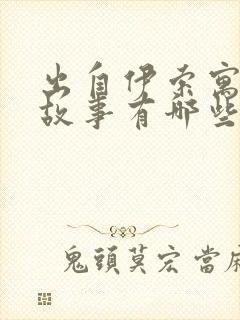 出自伊索寓
故事有哪些
鬼頭莫宏當麻